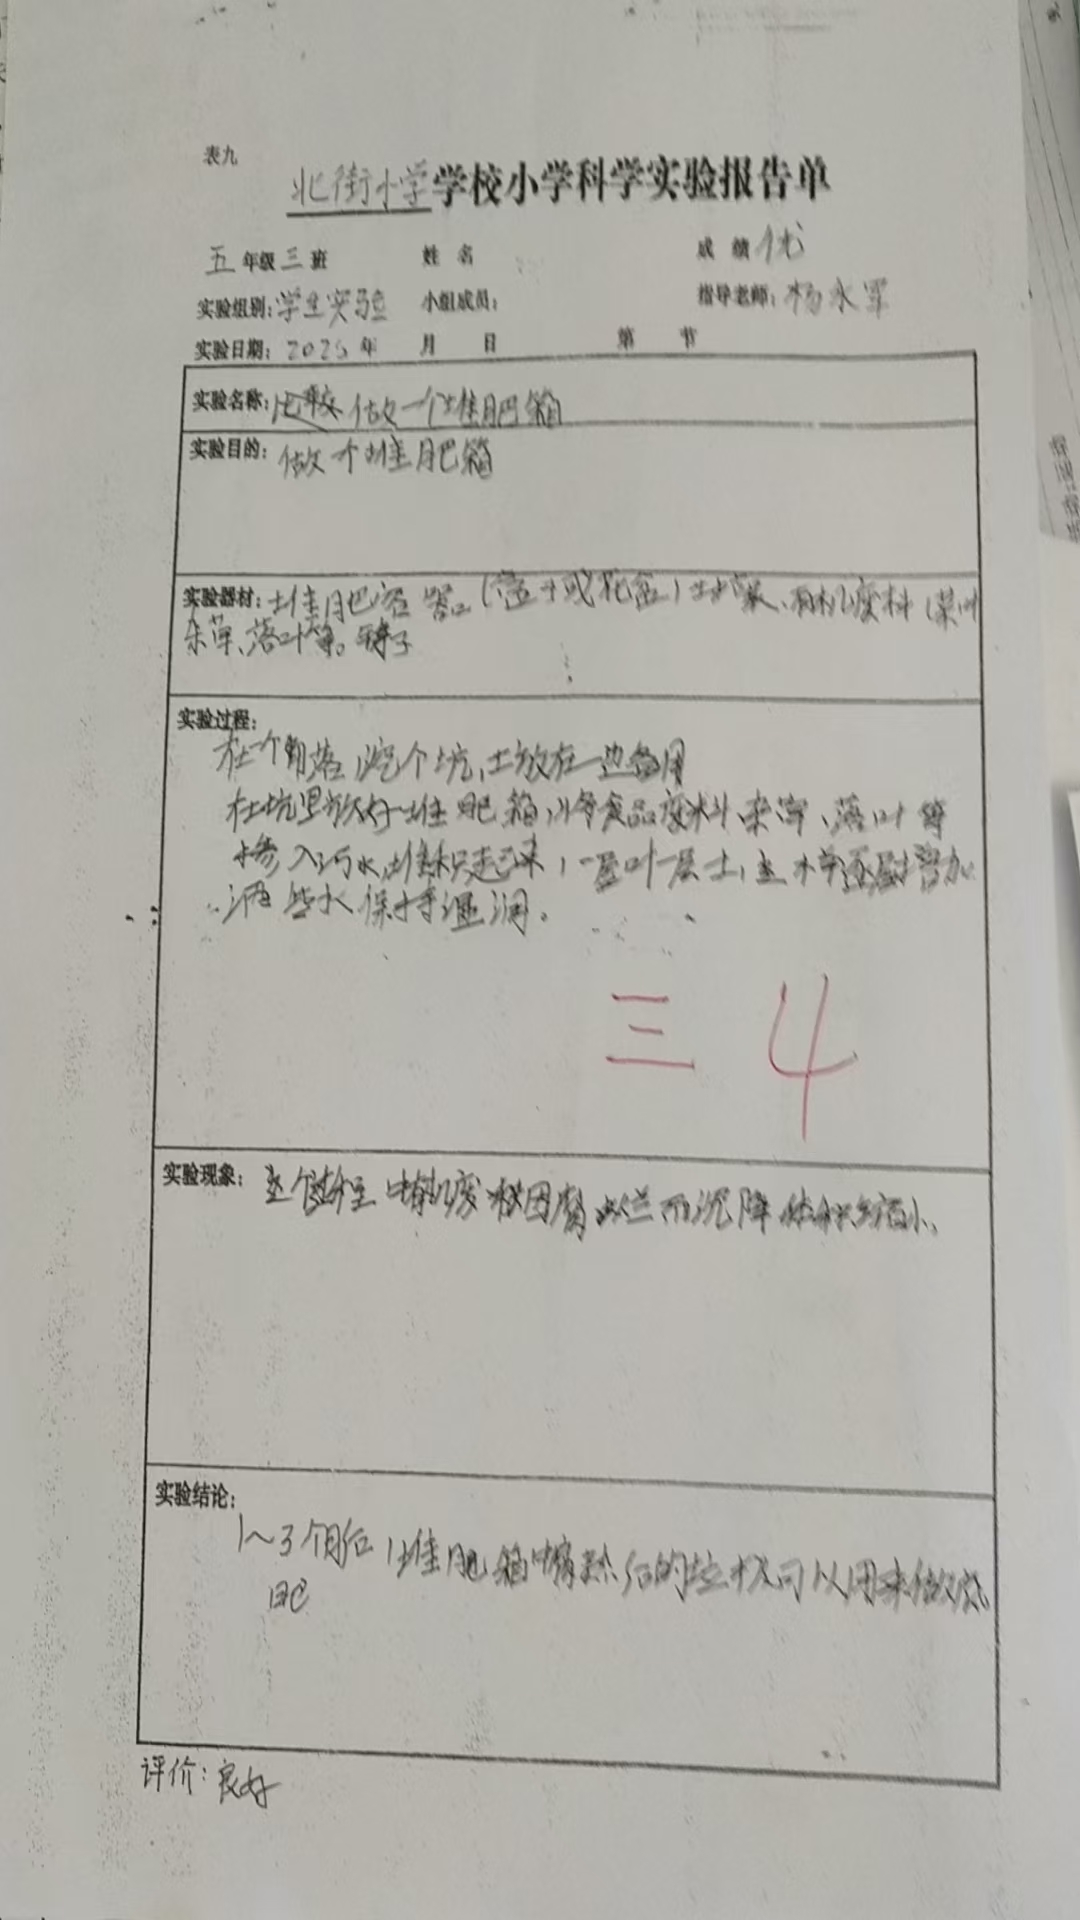 表九
北街小学学校小学科学实验报告单
五年级三班 姓名 成绩 优
实验组别:学生实验 小组成员: 指导老师:杨永军
实验日期:2025年 月 日 第 节
实验名称: 做一个堆肥箱
实验目的:做个堆肥箱
实验器材:堆肥容器(盒子或花盆)土壤、有机废料(菜叶
杂草、落叶等。铲子
实验过程:
在一个角落,挖个坑,土放在一边备用
在坑里放好堆肥箱,将食品废料杂草、落叶等
掺入污水,堆积起来,一层叶一层土,
洒些水保持湿润。
三 4
实验现象: 因腐烂而沉降体积缩小。
实验结论:
1~3个月后,堆肥箱中 可以用来做
肥
评价:良好